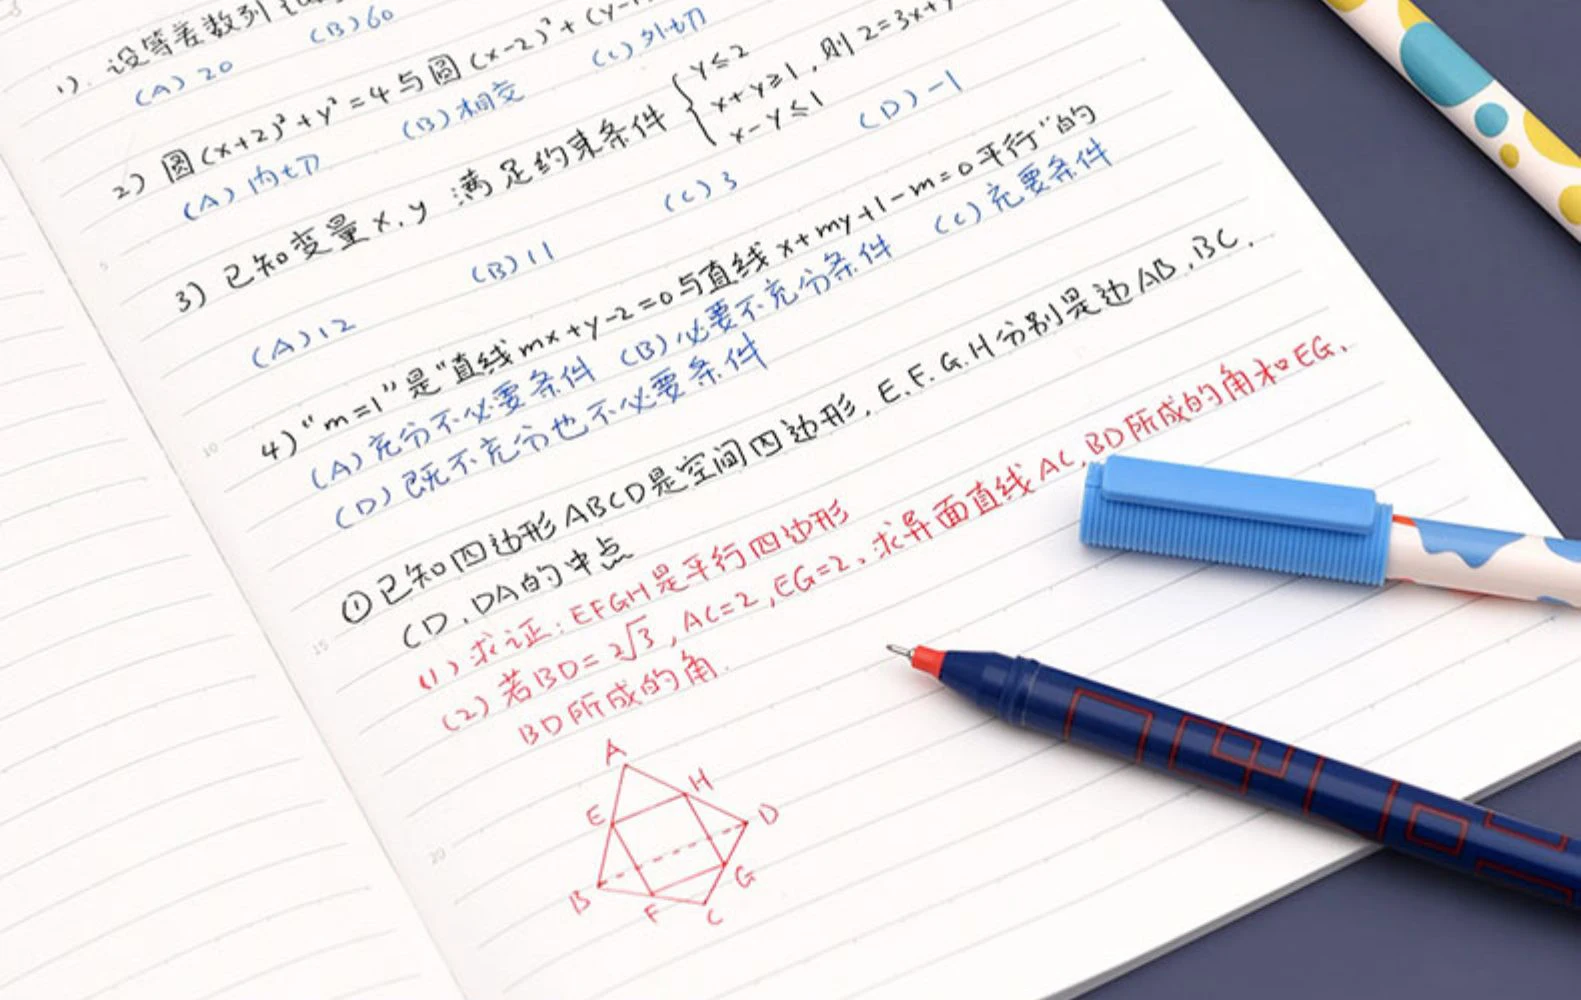 1). 设等差数列
(A) 20 (B) 60
2) 圆(x+2)²+y²=4与圆(x-2)²+(y-1
(A) 内切 (B) 相交 (C) 外切
3) 已知变量x,y 满足约束条件 { y≤2 x+y≥1 x-y≤1 , 则z=3x+y
(A) 12 (B) 11 (C) 3 (D) -1
4) “m=1”是“直线mx+y-2=0与直线x+my+1-m=0平行”的
(A) 充分不必要条件 (B) 必要不充分条件 (C) 充要条件
(D) 既不充分也不必要条件
① 已知四边形ABCD是空间四边形, E.F.G.H分别是边AB,BC,
CD,DA的中点
(1) 求证:EFGH是平行四边形
(2) 若BD=2√3,AC=2,EG=2,求异面直线AC,BD所成的角和EG,
BD所成的角.
A
H
E
D
B
G
F
C
5
10
15
20